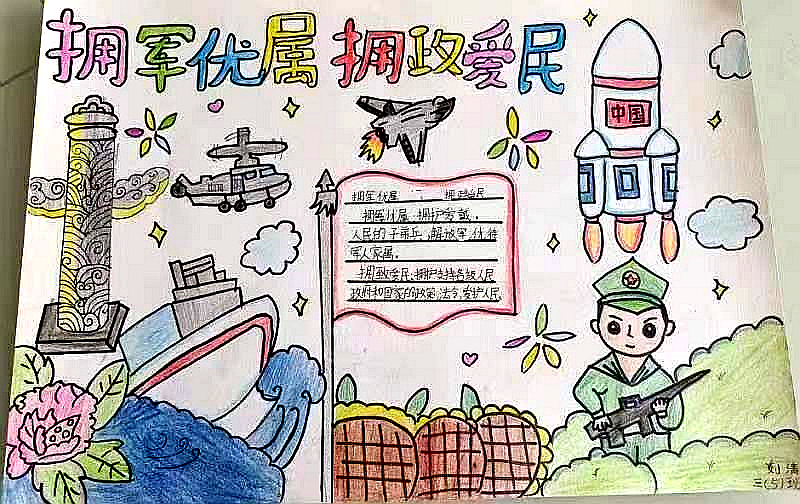 拥军优属 拥政爱民
中国
拥军优属 拥政爱民
拥军优属,拥护爱戴,
人民的子弟兵,解放军,优待
军人家属。
拥政爱民,拥护支持各级人民
政府和国家的政策、法令,爱护人民
刘清
三(5)班